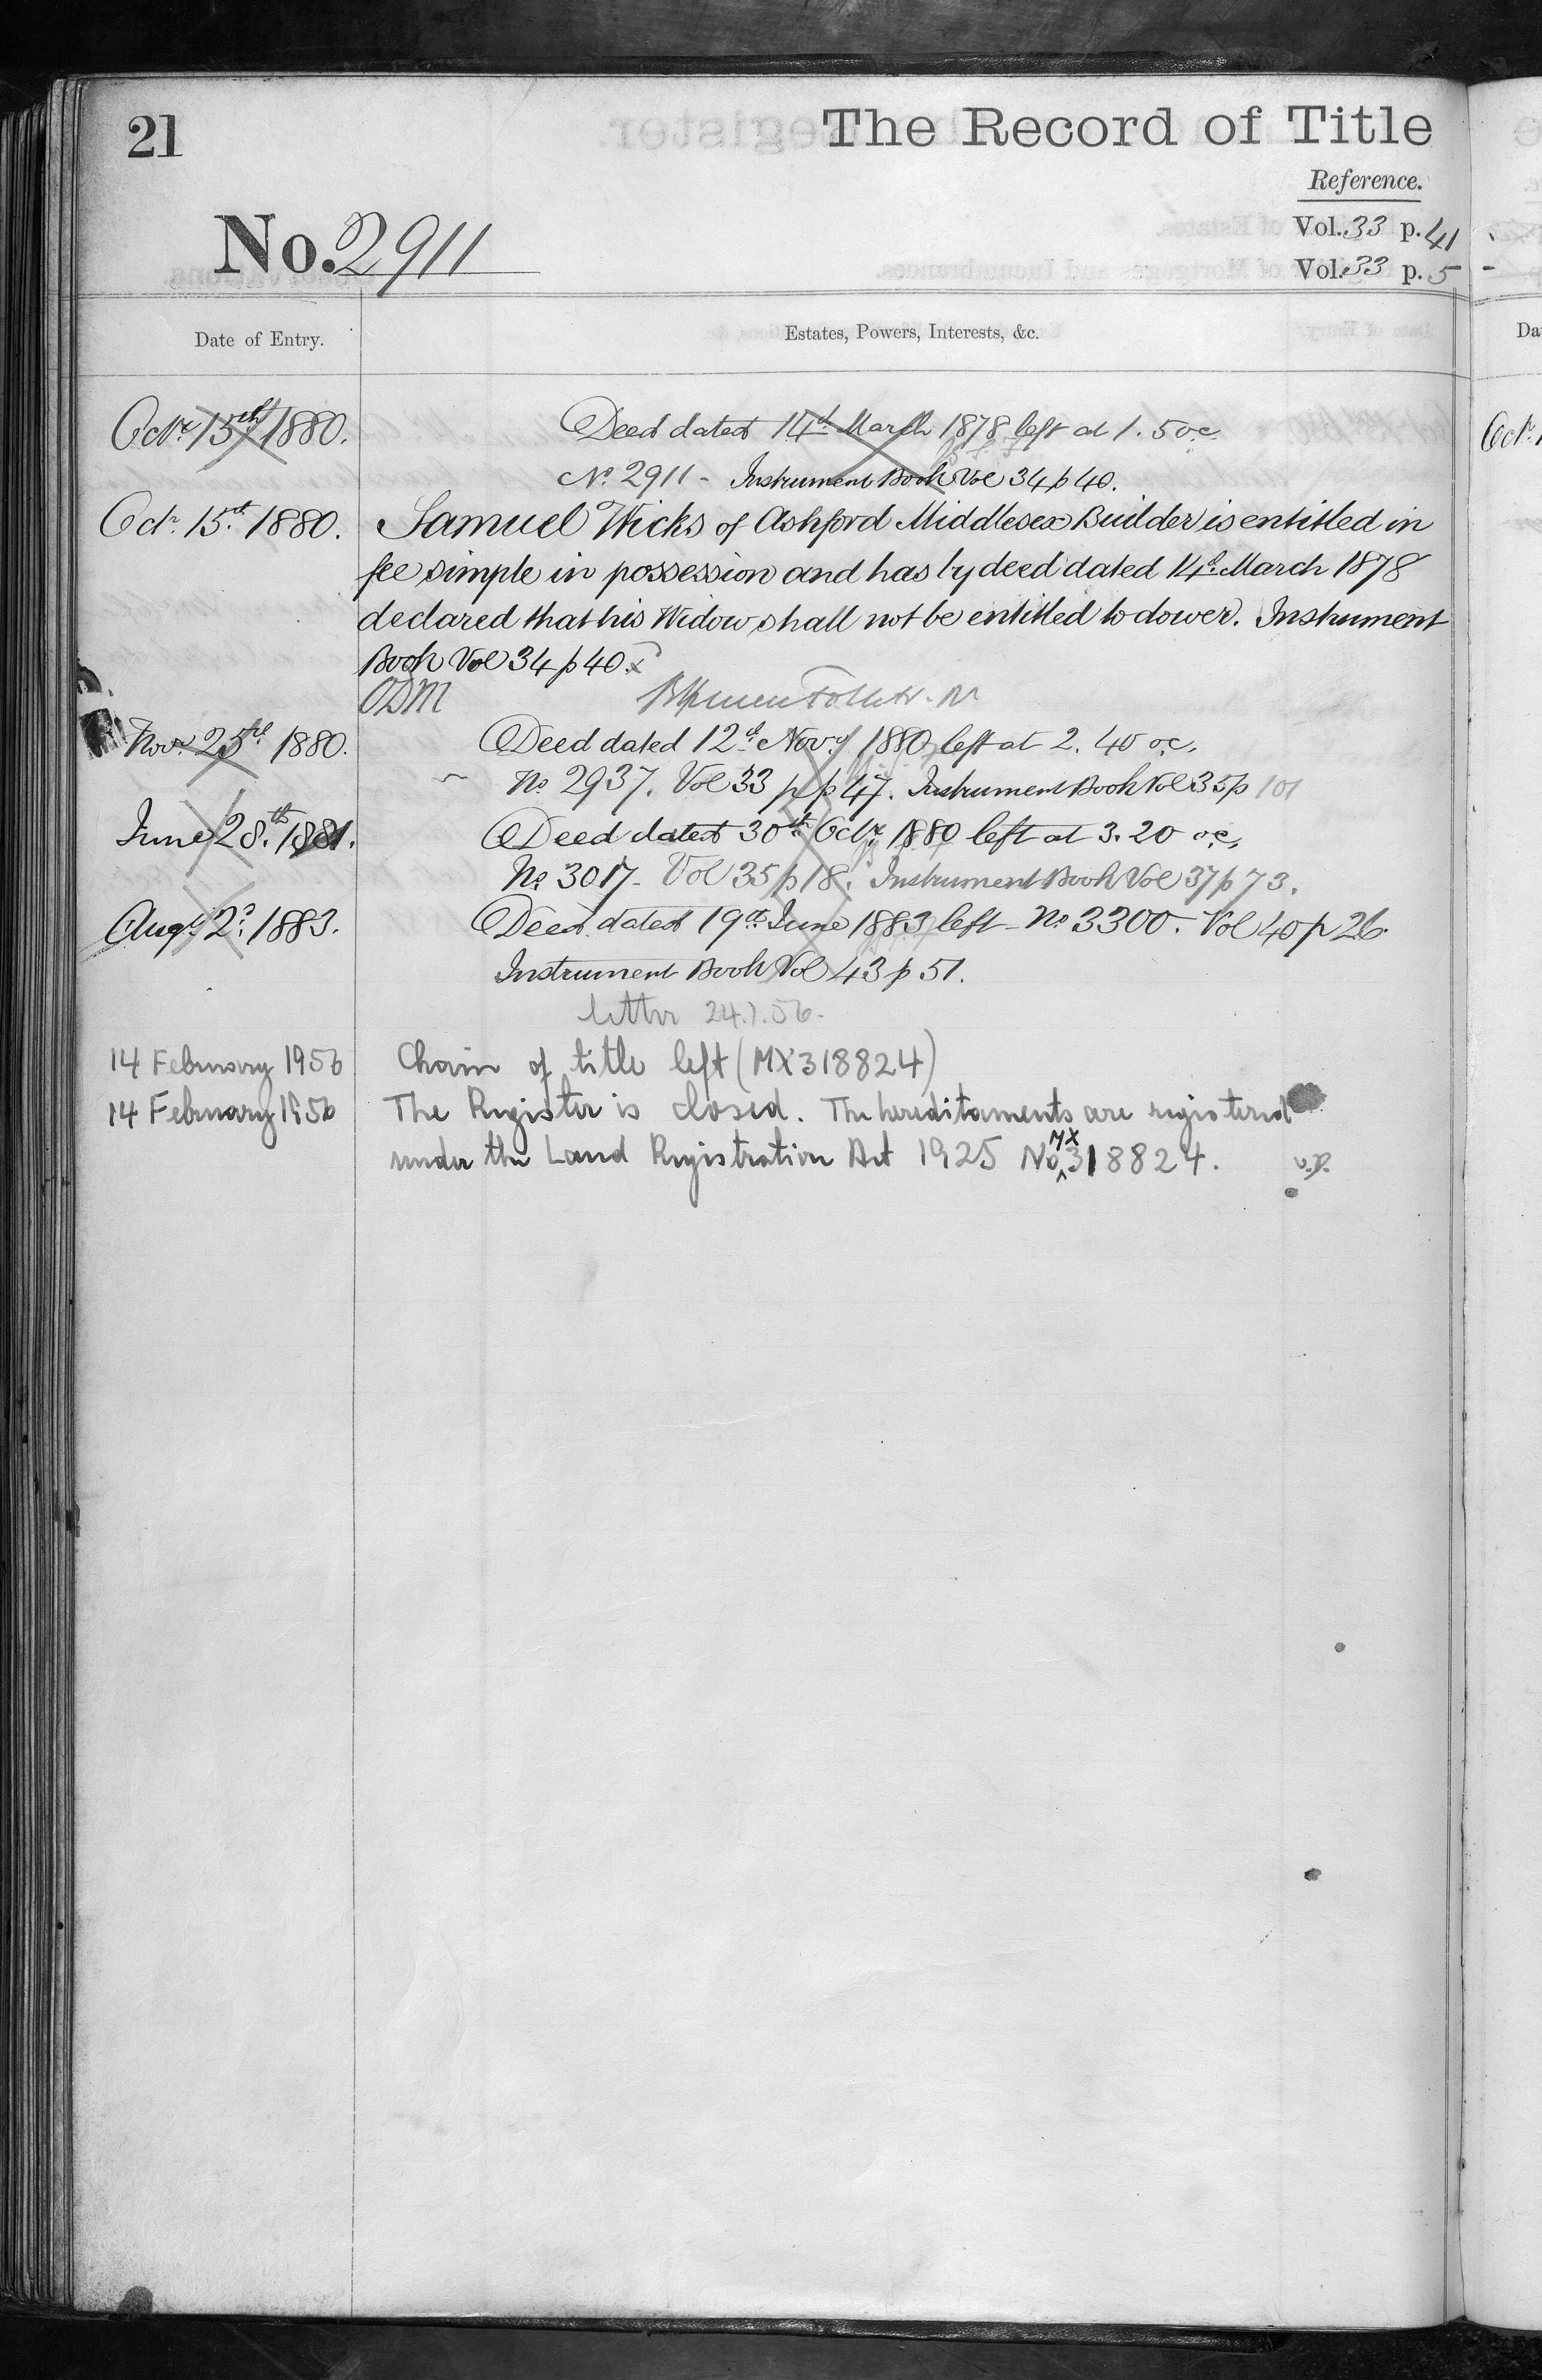 21
The Record of Title
Reference.
Vol. 33 p. 41
No. 2911
Vol. 33 p. 5
Date of Entry.
Estates, Powers, Interests, &c.
Octr. 15th 1880.
Deed dated 14th March 1878 left at 1. 5 oc.
No. 2911 - Instrument Book Vol 34 p 40.
Octr. 15th 1880.
Samuel Wicks of Ashford Middlesex Builder is entitled in
fee simple in possession and has by deed dated 14th March 1878
declared that his Widow shall not be entitled to dower. Instrument
Book Vol 34 p 40.
ODM
Novr 25th 1880.
Deed dated 12th Novr 1880 left at 2. 40 oc.
No 2937. Vol 33 p 47. Instrument Book Vol 35 p 101
June 28th 1881.
Deed dated 30th Octr. 1880 left at 3. 20 oc.
No. 3017 - Vol 35 p 18. Instrument Book Vol 37 p 73.
Augt. 2d 1883.
Deed dated 19th June 1883 left - No 3300. Vol 40 p 26.
Instrument Book Vol 43 p 51.
letter 24.1.56.
14 February 1956
Chain of title left (MX318824)
14 February 1956
The Register is closed. The hereditaments are registered
under the Land Registration Act 1925 No MX 318824.
Da
Octr.